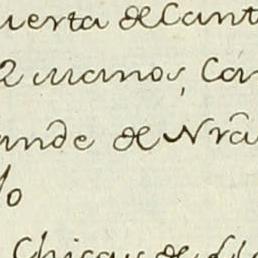 uerta de Cant
2 manos, Can
ande de Nrã
lo
Chicas de